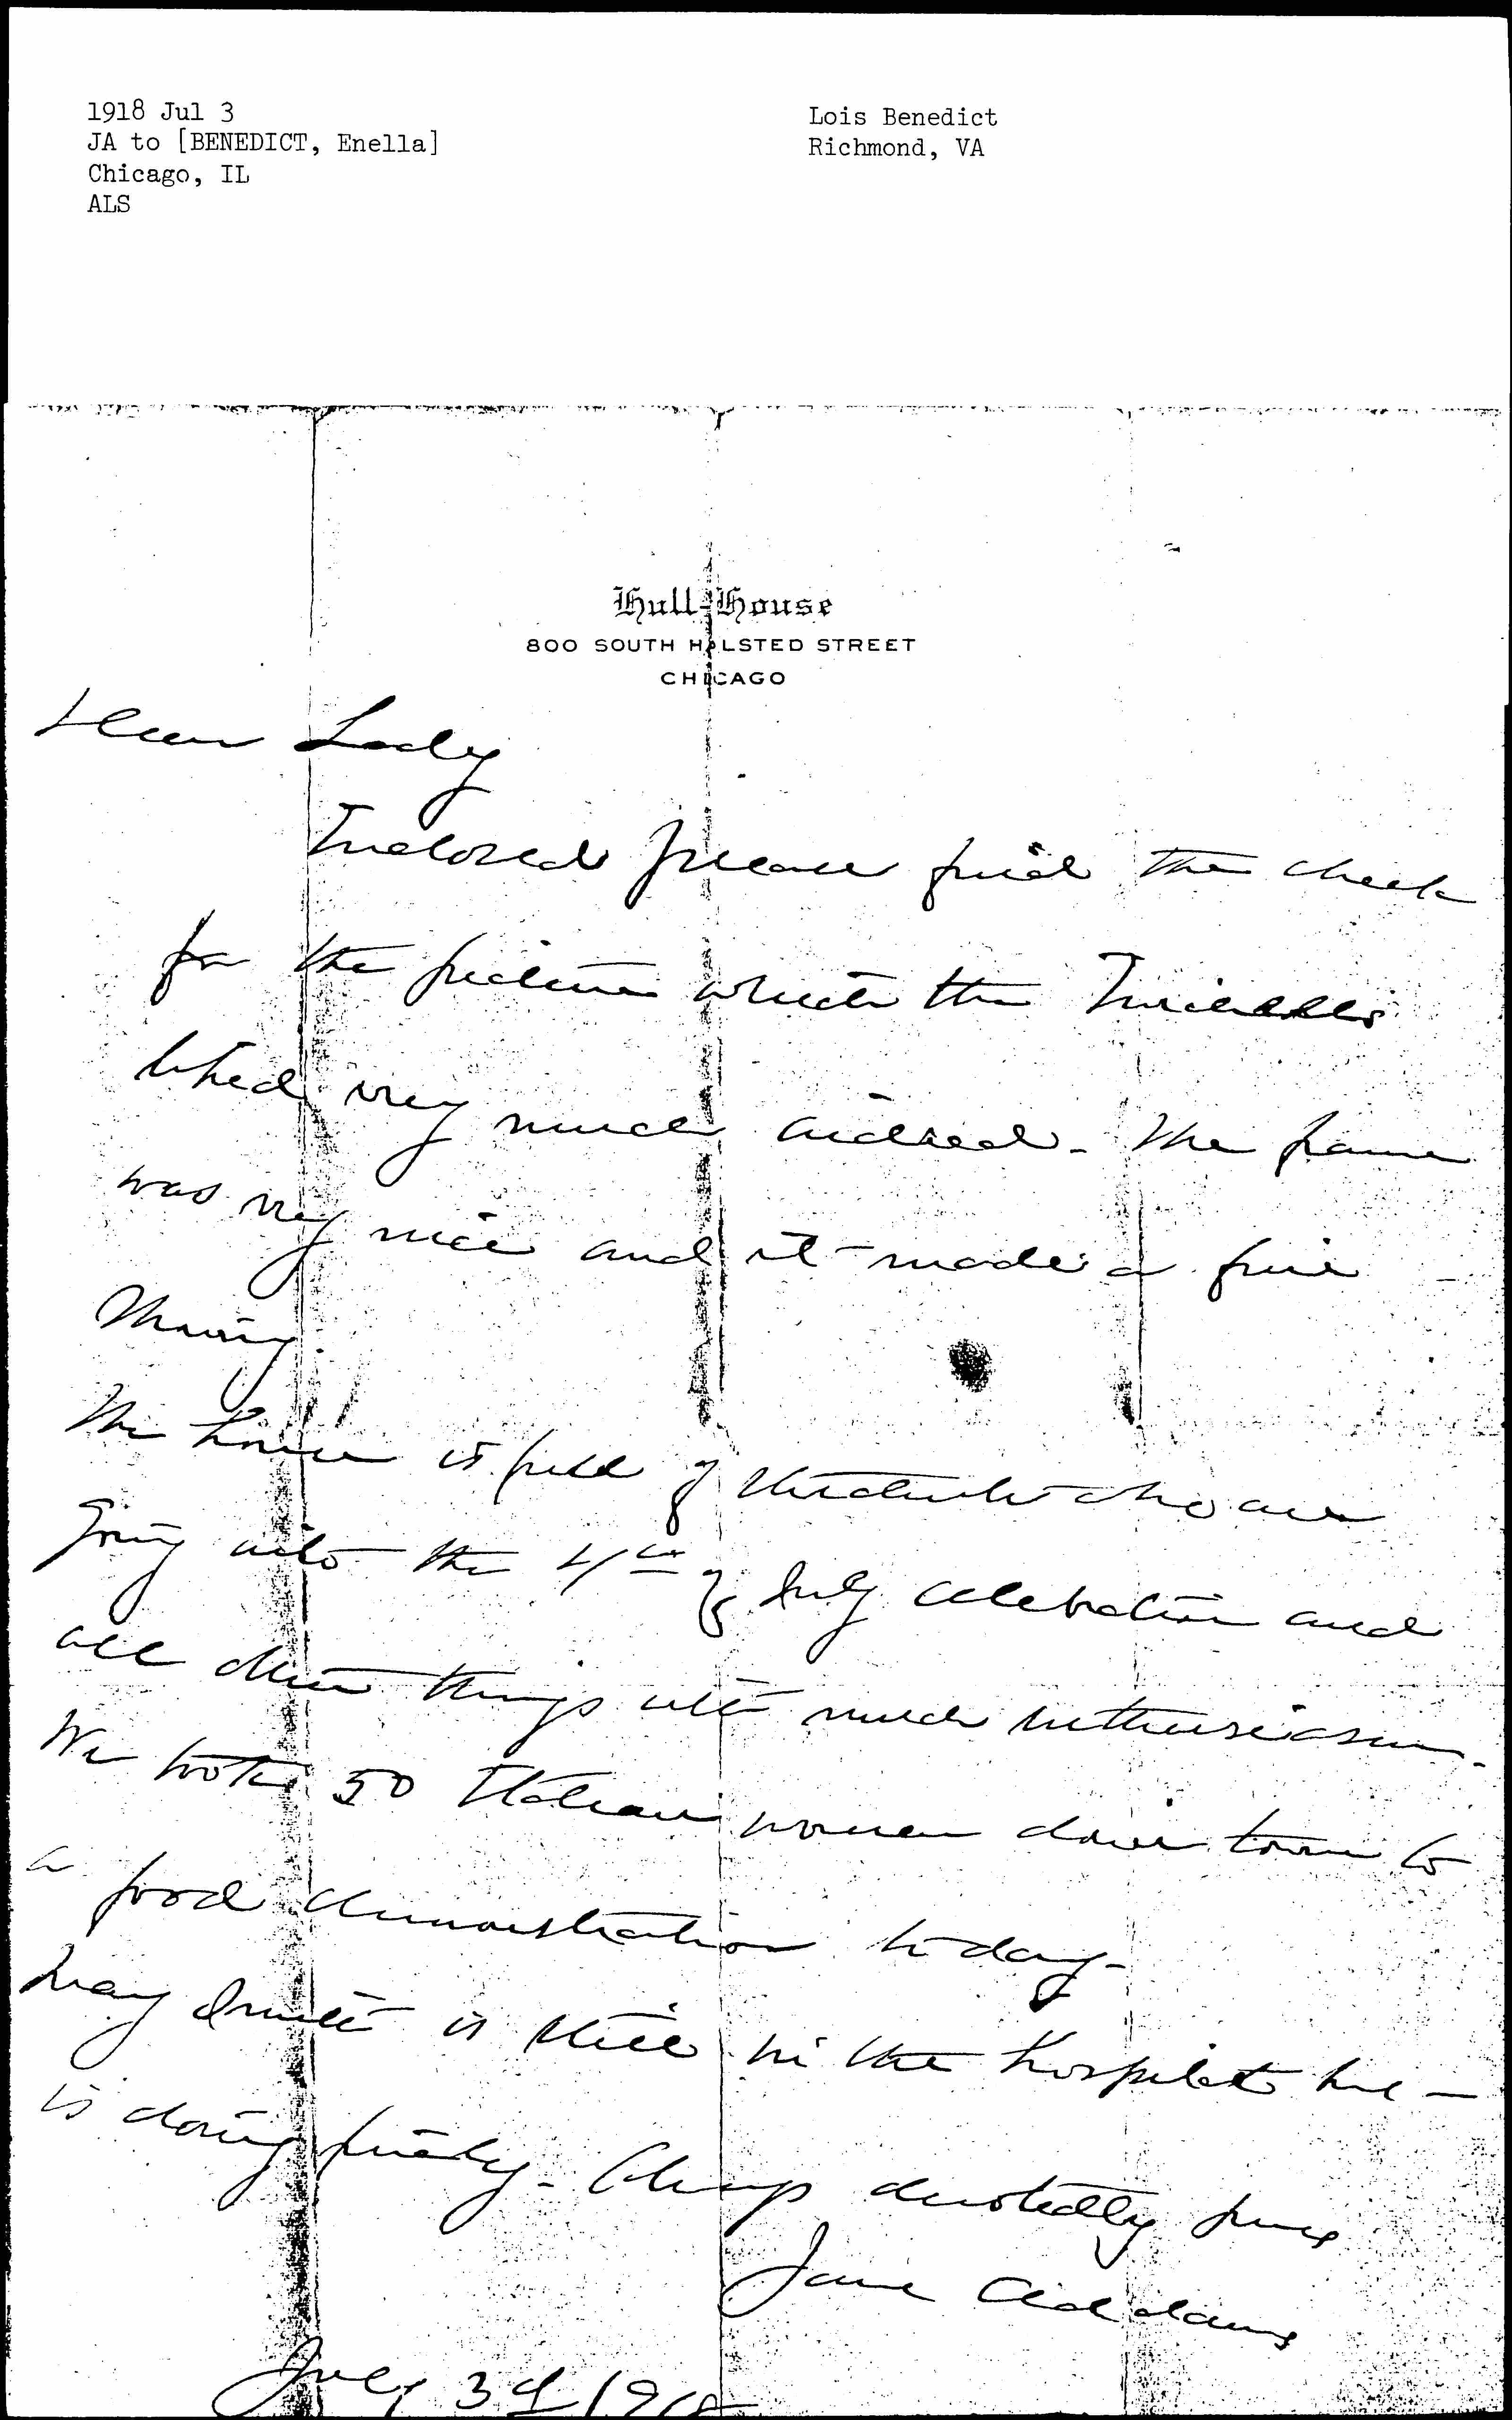 1918 Jul 3
JA to [BENEDICT, Enella]
Chicago, IL
ALS
Lois Benedict
Richmond, VA
Hull-House
800 SOUTH HALSTED STREET
CHICAGO
Dear Lady
Inclosed please find the check
for the picture which the
liked very much indeed. The frame
was very nice and it made a fine
showing
The house is full of students who are
going into the 4th of July celebration and
all other things with much enthusiasm.
We took 50 Italian women down town to
a food demonstration to day.
May Smith is still in the hospital but
is doing finely. Always devotedly yours
Jane Addams
July 3d 1918